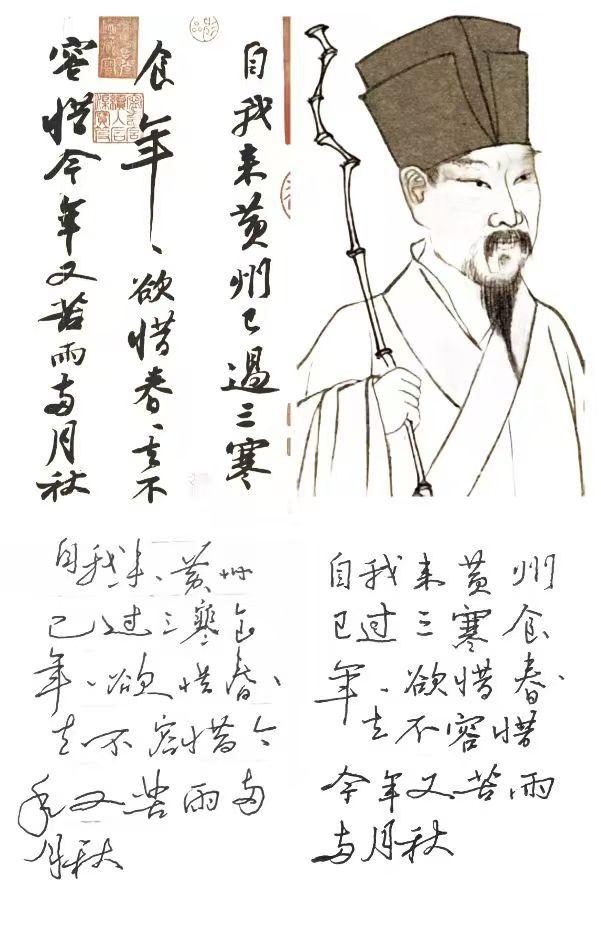 自我来黄州已過三寒
食年、欲惜春、去不
容惜今年又苦雨两月秋
自我来、黄州
已过三寒食
年、欲惜春、
去不容惜今
年又苦雨两
月秋
自我来黄州
已过三寒食
年、欲惜春、
去不容惜
今年又苦雨
两月秋